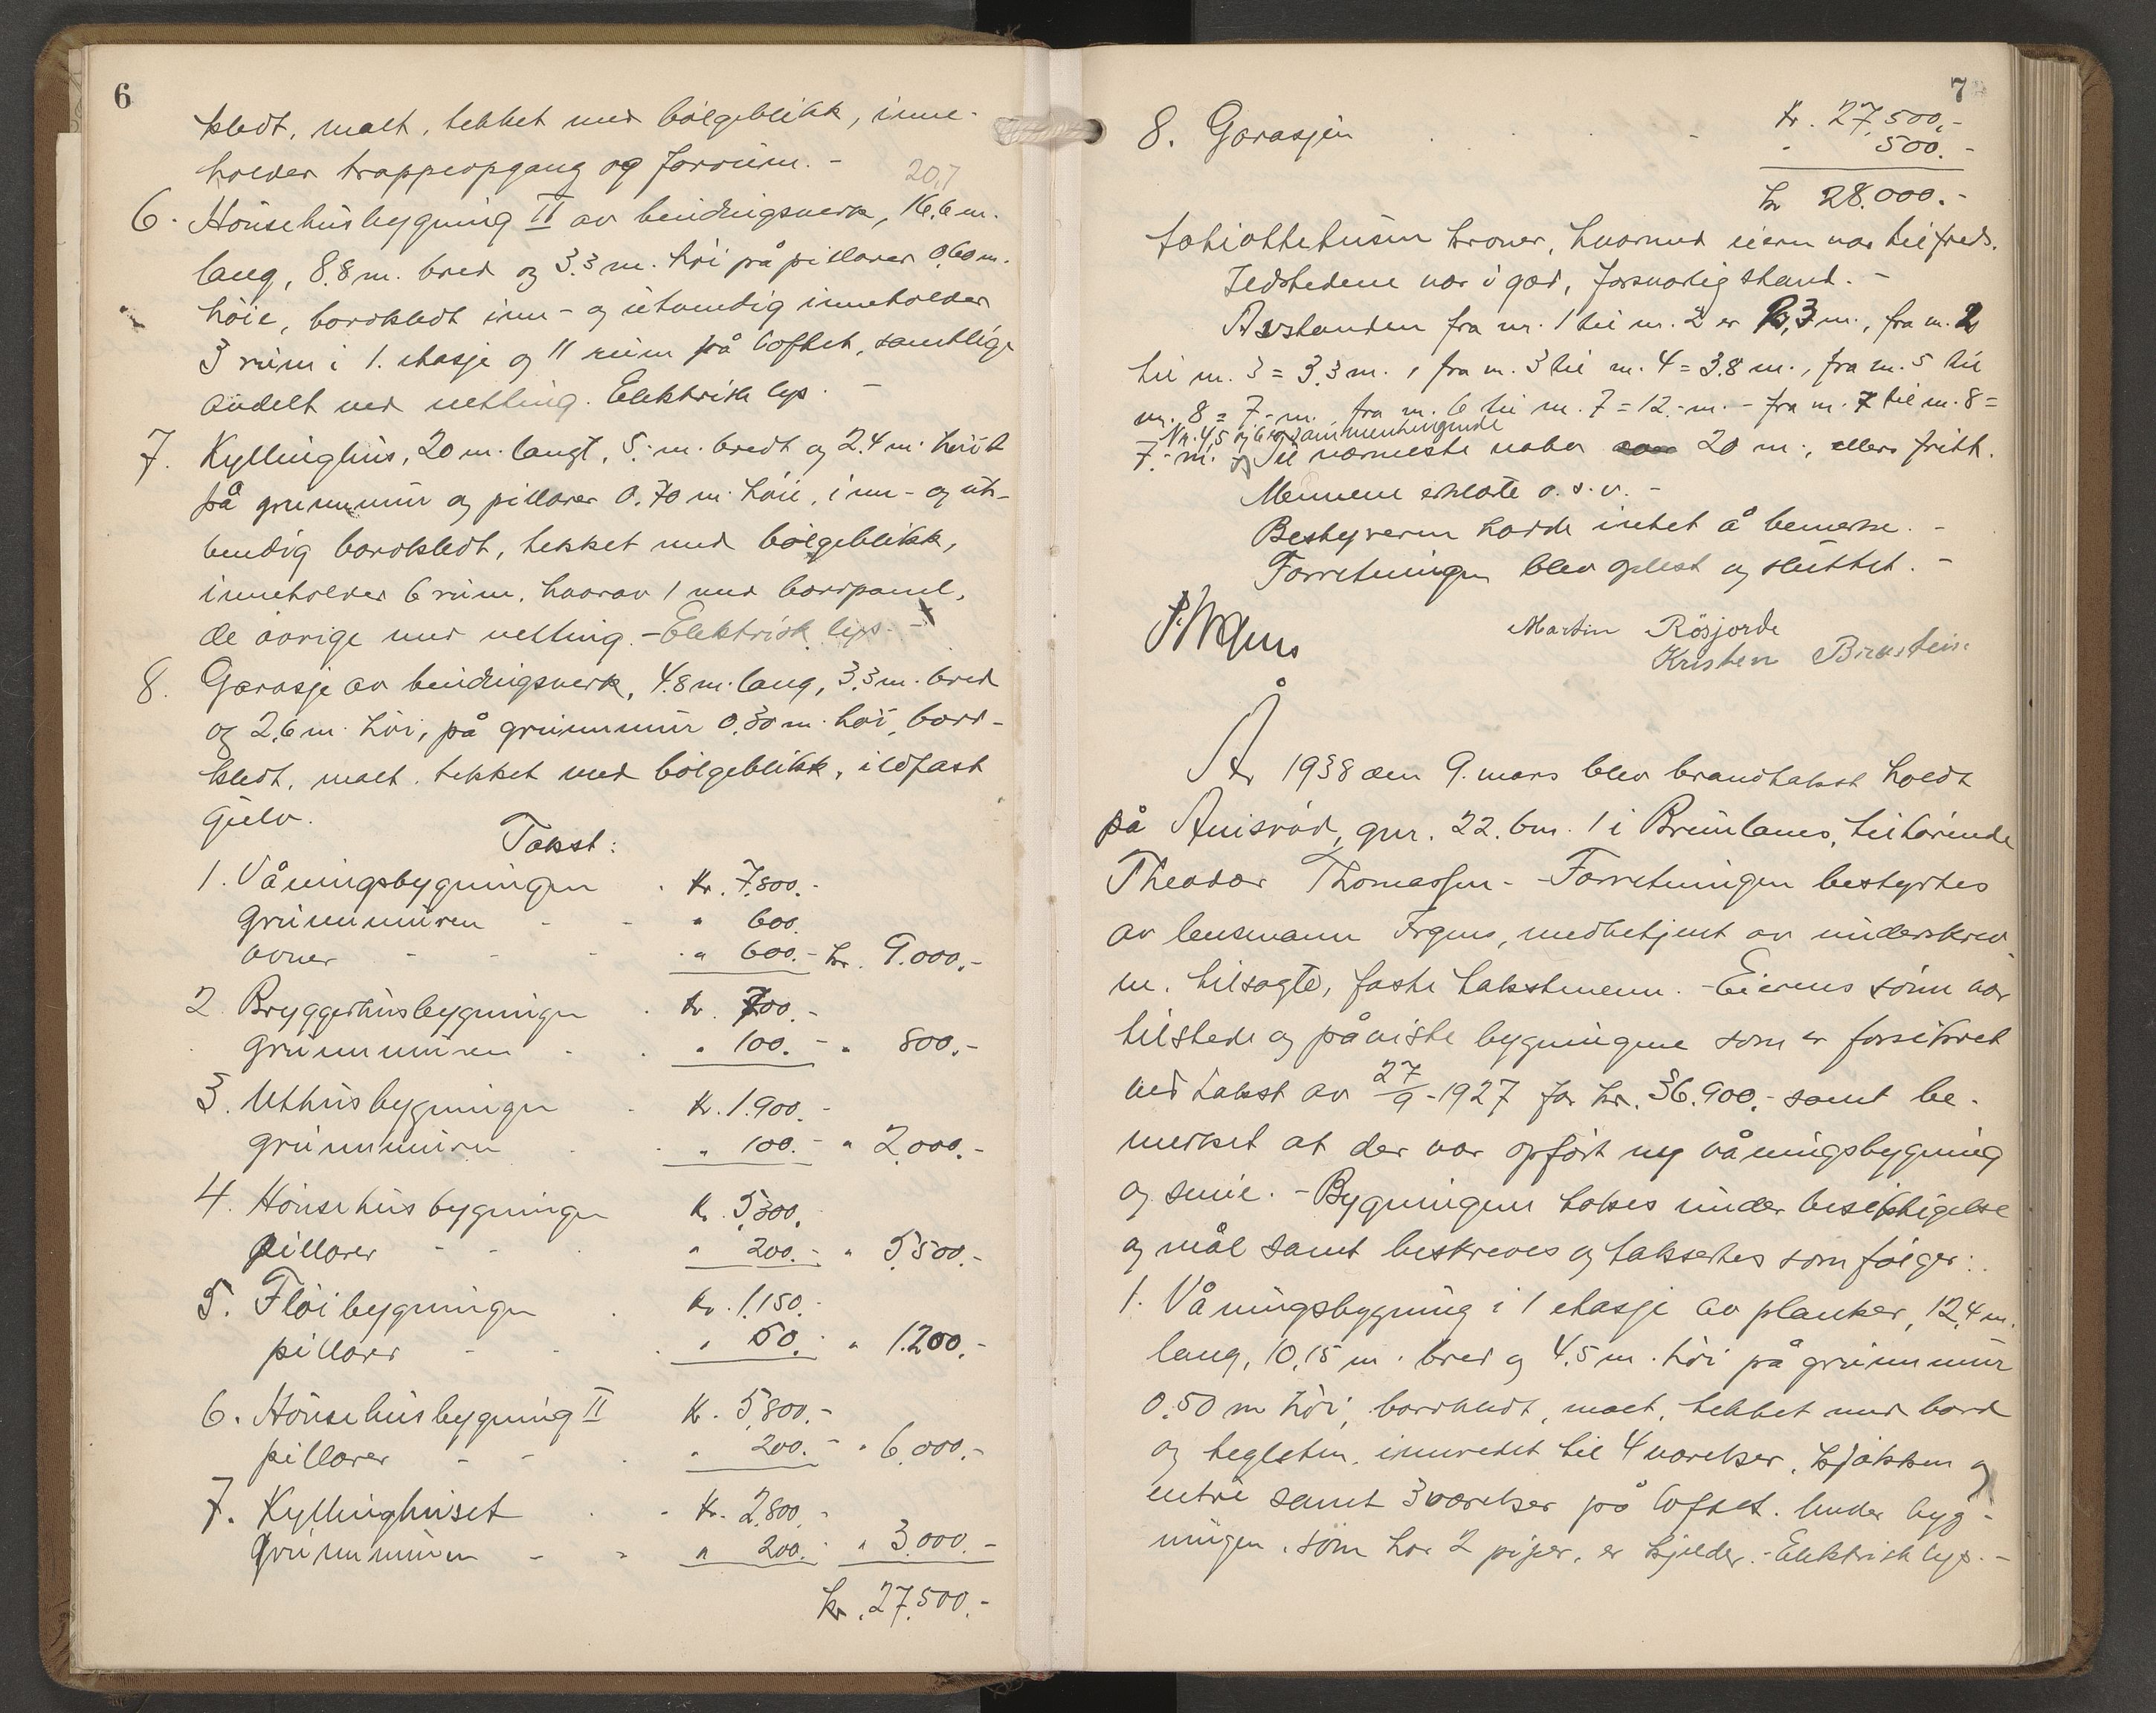 6
kledt, malt, tekket med bølgeblikk, inne-
holder trappeopgang og forrum. -
20,7
6. Hönsehusbygning II av bindingsverk, 16,6 m.
lang, 8,8 m. bred og 3,3 m. höi på pillarer 0,60 m.
höie, bordkledt inn- og utvendig inneholder
3 rum i 1. etasje og 11 rum på loftet, samtlige
avdelt med netting. Elektrisk lys. -
7. Kyllinghus, 20 m. langt, 5,- m. bredt og 2,4 m. höit
på grunnmur og pillarer 0,70 m. höie, inn- og ut-
vendig bordkledt, tekket med bölgeblikk,
inneholder 6 rum, hvorav 1 med bordpanel,
de övrige med netting. - Elektrisk lys. -
8. Garasje av bindingsverk, 4,8 m. lang, 3,3 m. bred
og 2,6 m. höi, på grunnmur 0,30 m. höi, bord-
kledt, malt, tekket med bölgeblikk, ildfast
gulv.
Takst:
1. Våningsbygningen . kr. 7.800.-
grunnmuren - - " 600.
ovner - - - " 600.- kr. 9.000.-
2 Bryggerhusbygningen . kr. 700.-
grunnmuren . . " 100.- " 800.-
3. Uthusbygningen . kr. 1.900.-
grunnmuren . . " 100.- " 2.000.-
4. Hönsehusbygningen kr. 5.300.
pillarer - - . " 200.- " 5.500.-
5. Flöibygningen . kr. 1.150.-
pillarer - . " 50.- " 1.200.-
6. Hönsehusbygning II kr. 5.800.-
pillarer - - . " 200.- " 6.000.-
7. Kyllinghuset . . kr. 2.800.-
Grunnmuren - - " 200. " 3.000.-
kr. 27.500.-
7
kr. 27.500.-
8. Garasjen . . . - " 500.-
kr 28.000.-
totiottetusen kroner, hvormed eieren var tilfreds.
Ildstedene var i god, forsvarlig stand. -
Avstanden fra nr. 1 til nr. 2 er 3 m., fra nr. 2
til nr. 3 = 3,3 m., fra nr. 3 til nr. 4 = 3,8 m., fra nr. 5 til
nr. 8 = 7,- m., fra nr. 6 til nr. 7 = 12,- m. - fra nr. 7 til nr. 8 =
Nr. 4, 5 og 6 er sammenhengende
7,- m. og Til nærmeste nabo 20 m., ellers fritt.
Mennene erklærte o.s.v. -
Bestyreren hadde intet å bemerke. -
Forretningen blev oplest og sluttet. -
Martin Rösjorde
Kristen
År 1938 den 9. mars blev brandtakst holdt
på Anisröd, gnr. 22. bnr. 1 i Brunlanes, tilhörende
Theodor Thomassen - Forretningen bestyrtes
av lensmann Irgens, medbetjent av underskrev
ne. tilsagte, faste takstmenn. - Eierens sönn var
tilstede og påviste bygningene som er forsikret
ved takst av 27/9-1927 for kr. 36.900,- samt be-
merket at der var opfört ny våningsbygning
og smie. - Bygningene tokes under besiktigelse
og mål samt beskreves og taksertes som fölger:
1. Våningsbygning i 1 etasje av planker, 12,4 m.
lang, 10,15 m. bred og 4,5 m. höi på grunnmur
0,50 m höi, bordkledt, malt, tekket med bord
og teglsten, innredet til 4 værelser, kjökken og
entré samt 3 værelser på loftet. Under byg-
ningen, som har 2 piper, er kjelder. - Elektrisk lys. -